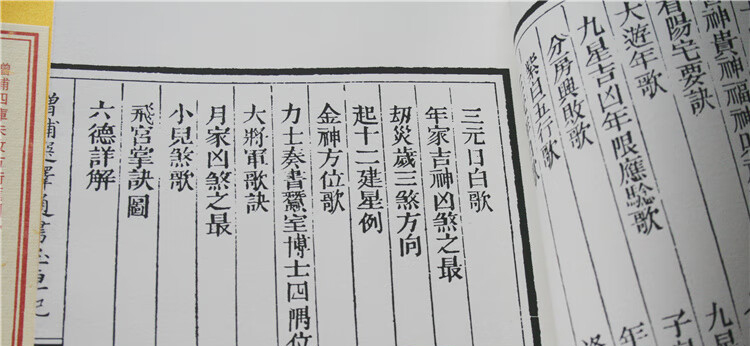 看陽宅要訣
大遊年歌
九星吉凶年限應驗歌
分房興敗歌
紫白五行歌
九星
年
三元日白歌
年家吉神凶煞之最
刼災歲三煞方向
起十二建星例
金神方位歌
力士奏書蠶室博士四隅位
大將軍歌訣
月家凶煞之最
小兒煞歌
飛宮掌訣圖
六德詳解
增補選擇通書
增補四庫未收